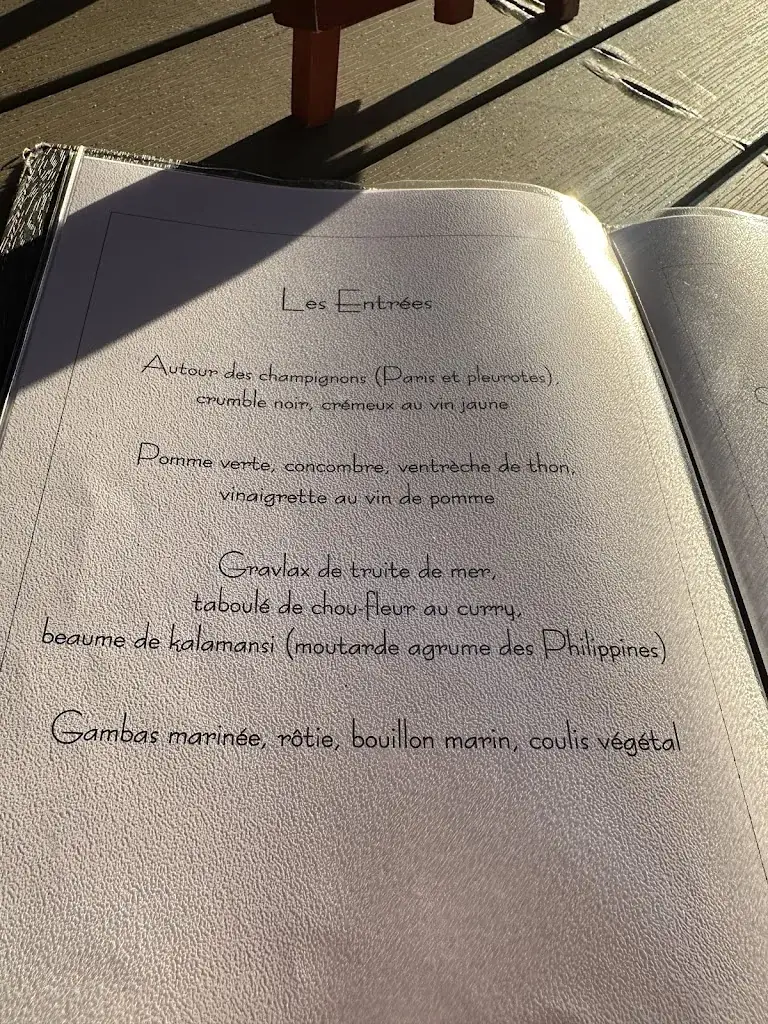 Les Entrées
Autour des champignons (Paris et pleurotes),
crumble noir, crémeux au vin jaune
Pomme verte, concombre, ventrèche de thon,
vinaigrette au vin de pomme
Gravlax de truite de mer,
taboulé de chou-fleur au curry,
beaume de kalamansi (moutarde agrume des Philippines)
Gambas marinée, rôtie, bouillon marin, coulis végétal